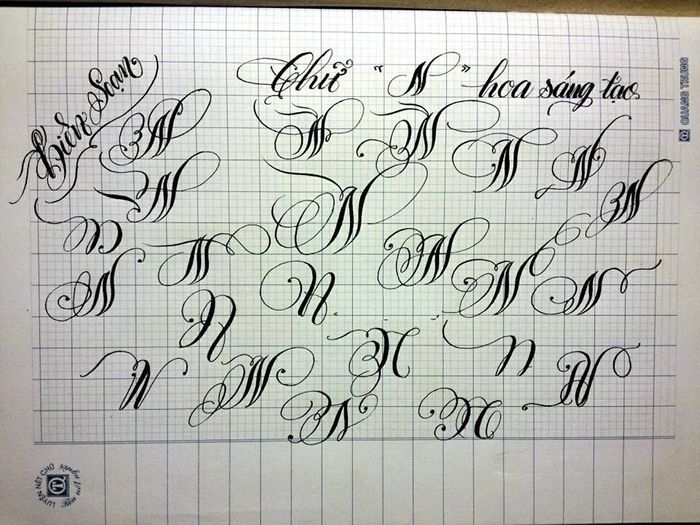 Biên Soạn
Chữ "N" hoa sáng tạo
N N N N N
N N N
N N N
N N N N
N N N N N
N N N N
QUANG TRUNG
LUYỆN NÉT CHỮ